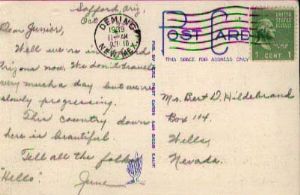 Safford, Ariz.
Oct
Dear Junior,
Well we're in
Arizona now. We don't travel
very much a day but we're
slowly progressing.
This country down
here is beautiful.
Tell all the folks
"Hello."
June
DEMING
1939
N. MEX.
POST CARD
THIS SPACE FOR ADDRESS ONLY
1 CENT 1
Mr. Bert D. Hildebrand
Box 114.
Wells,
Nevada.